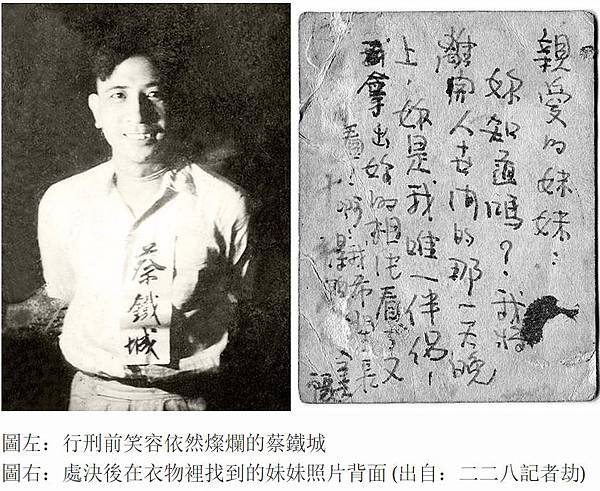 蔡鐵城
親愛的妹妹：
妳知道嗎？我將
離開人世間的那一天晚
上，妳是我唯一伴侶，
拿出妳的相片看了又
看 啊 我希望 長
圖左：行刑前笑容依然燦爛的蔡鐵城
圖右：處決後在衣物裡找到的妹妹照片背面 (出自：二二八記者劫)